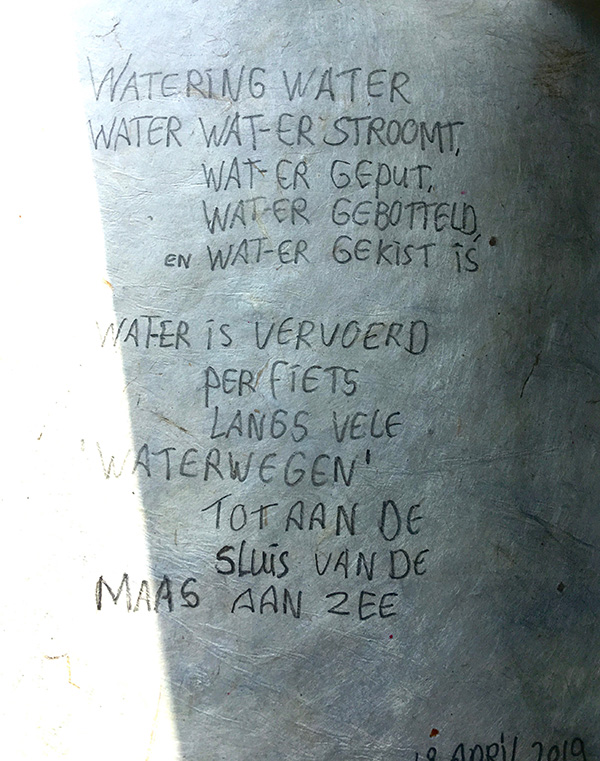 WATERING WATER
WATER WAT-ER STROOMT,
WAT-ER GEPUT,
WAT-ER GEBOTTELD,
EN WAT-ER GEKIST IS
WAT-ER IS VERVOERD
PER FIETS
LANGS VELE
'WATERWEGEN'
TOT AAN DE
SLUIS VAN DE
MAAS AAN ZEE
18 APRIL 2019